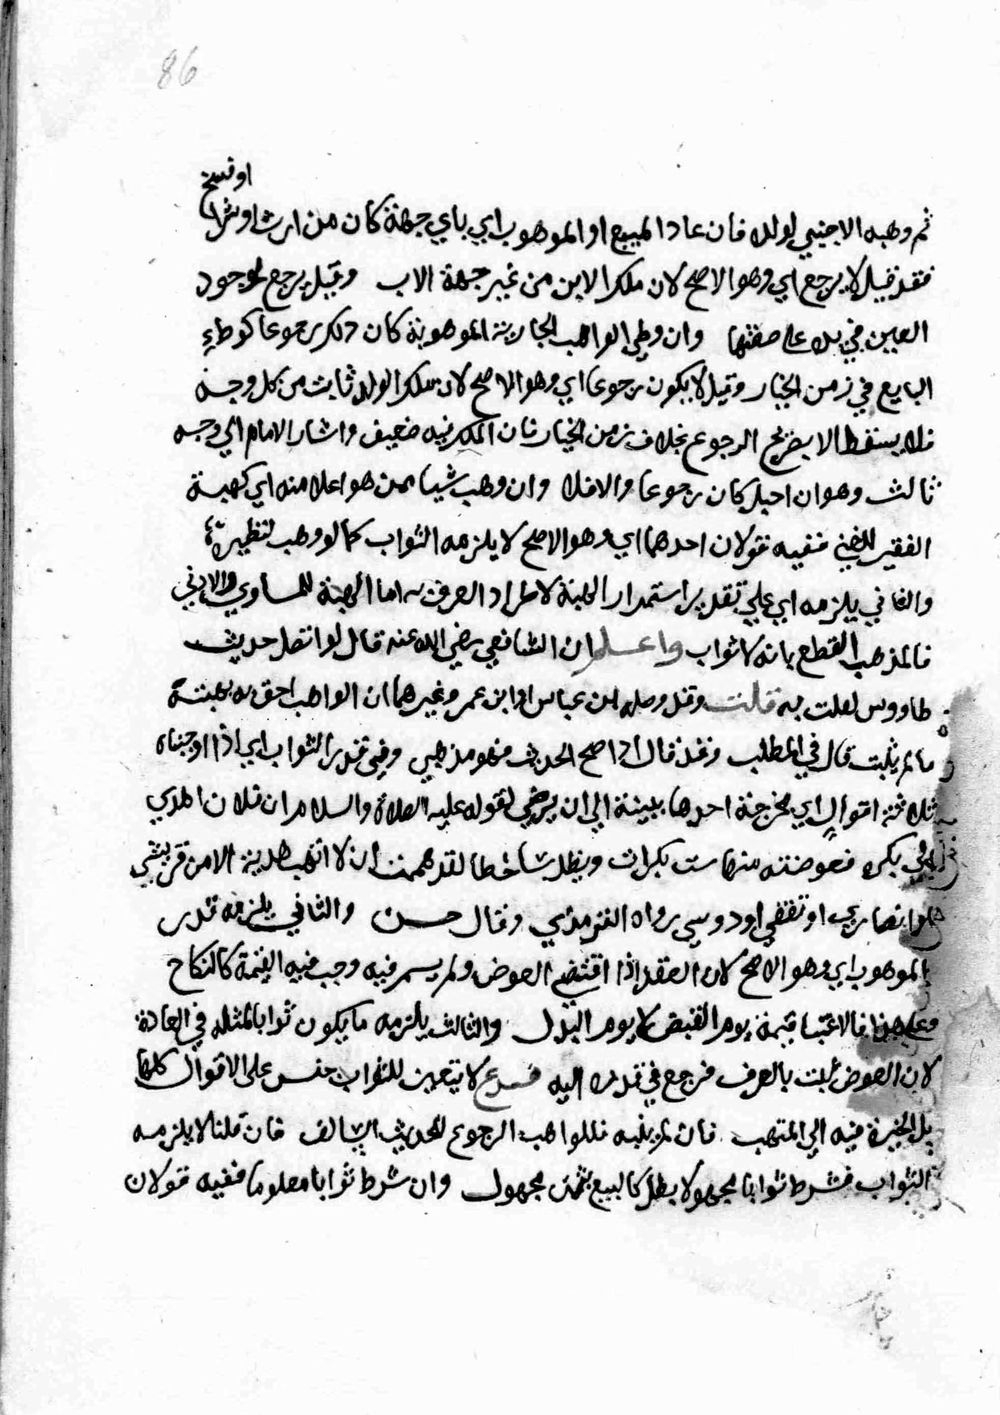 86
او فسخ
ثم وهبه الاجنبي لولده فان عاد المبيع او الموهوب اي باي جهة كان من ارث او شرا
فقد قيل لا يرجع اي وهو الاصح لان ملك الابن من غير جهة الاب وقيل يرجع لوجود
العين في يده على صفتها وان وطي الواهب الجارية الموهوبة كان ذلك رجوعا كوطء
البايع في زمن الخيار وقيل لا يكون رجوعا اي وهو الاصح لان ملك الولد ثابت من كل وجه
فلا يسقط الا بصريح الرجوع بخلاف زمن الخيار فان الملك فيه ضعيف واشار الامام الي وجه
ثالث وهو ان احبل كان رجوعا والا فلا وان وهب شيا ممن هو اعلا منه اي كهبة
الفقير للغني ففيه قولان احدهما اي وهو الاصح لا يلزمه الثواب كما لو وهب لنظيره
والثاني يلزمه اي علي تقدير استمرار الهبة لاطراد العرف به اما الهبة للمساوي والادني
فالمذهب القطع بانه لا ثواب واعلم ان الشافعي رضي الله عنه قال لو اتصل حديث
طاووس لقلت به قلت وقد وصله ابن عباس وابن عمر وغيرهما ان الواهب احق به بهبته
ما لم يثبت قال في المطلب وقد قال اذا صح الحديث فهو مذهبي وفي قدر الثواب اي اذا اوجبناه
ثلاثة اقوال اي مخرجة احدها يثيبه الي ان يرضي لقوله عليه الصلاة والسلام ان فلان اهدي
الي بكرة فعوضته منها ست بكرات ويظل ساخطا لقد هممت ان لا اتهب هدية الا من قرشي
او انصاري او ثقفي او دوسي رواه الترمذي وقال حسن والثاني يلزمه قدر
الموهوب اي وهو الاصح لان العقد اذا اقتضي العوض ولم يسم فيه وجب فيه القيمة كالنكاح
وعلي هذا فالاعتبار قيمة يوم القبض لا يوم البذل والثالث يلزمه ما يكون ثوابا لمثله في العادة
لان العوض ثبت بالعرف فرجع في قدره اليه فرع لا يتعين للثواب جنس على الاقوال كلها
بل الخيرة فيه الي المتهب فان لم يثبه فللواهب الرجوع للحديث السالف فان قلنا لا يلزمه
الثواب فشرط ثوابا مجهولا بطل كالبيع بثمن مجهول وان شرط ثوابا معلوما ففيه قولان